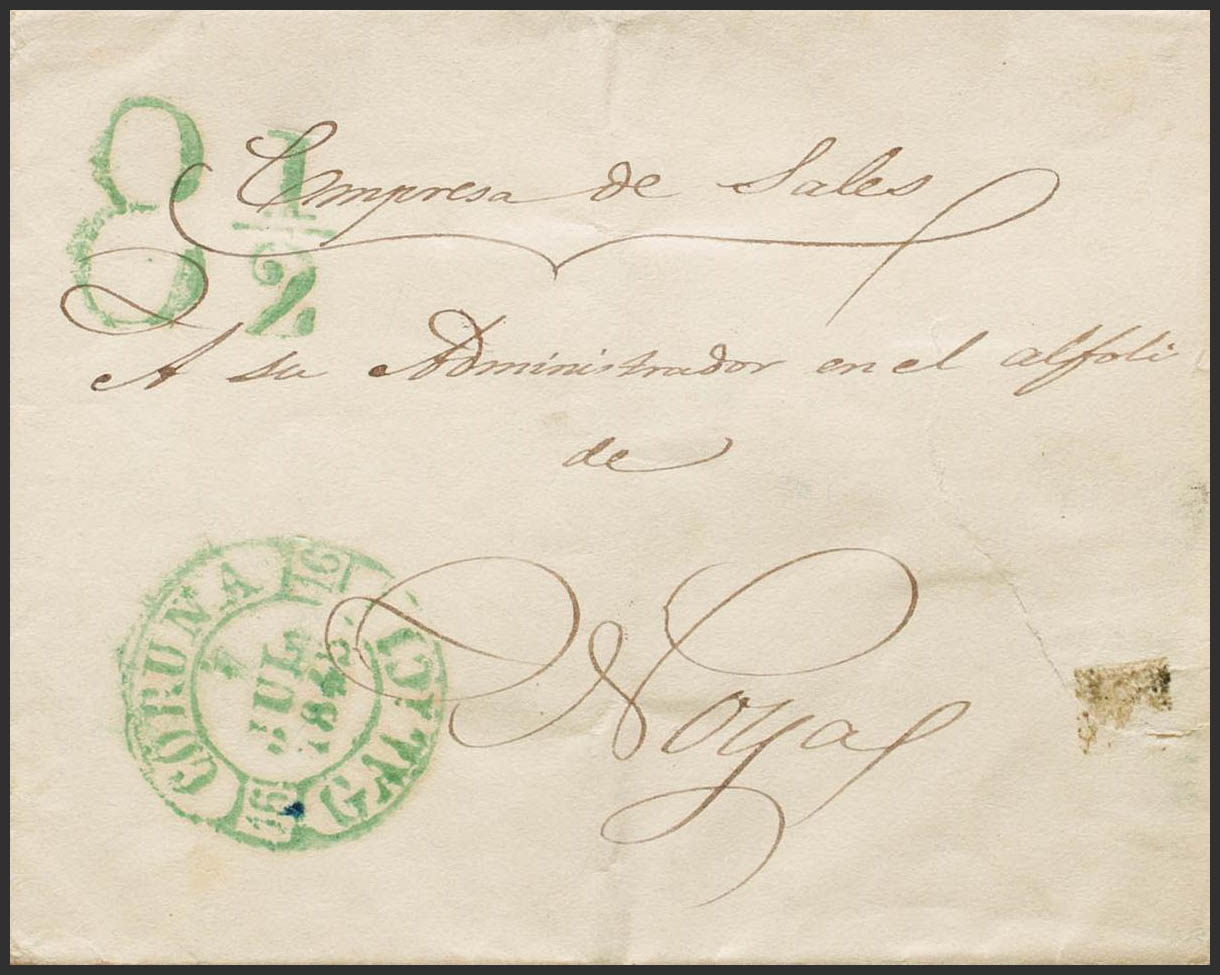 8 1/2
Empresa de Sales
A su Administrador en el alfolí
de
Noya
CORUNA
16
GALICI
JUL
16